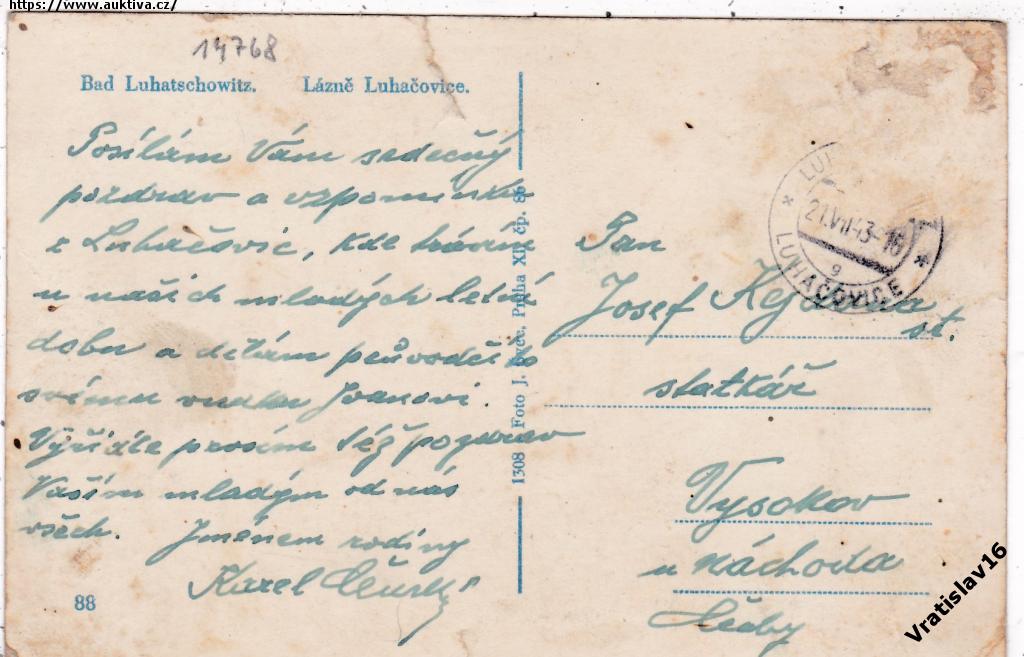 https://www.auktiva.cz/
14768
Bad Luhatschowitz. Lázně Luhačovice.
Posílám Vám srdečný
pozdrav a vzpomínku
z Luhačovic, kde trávím
u našich mladých letní
dobu a dělám průvodčího
svému vnuku Ivanovi.
Vyřiďte prosím též pozdrav
Vašim mladým od nás
všech. Jménem rodiny
Karel
88
1308 Foto J. Praha XI. čp. 86
LUHAČOVICE
21.VII.43-16
9
Pan
Josef st.
statkář
Vysokov
u Náchoda
Čechy
Vratislav16